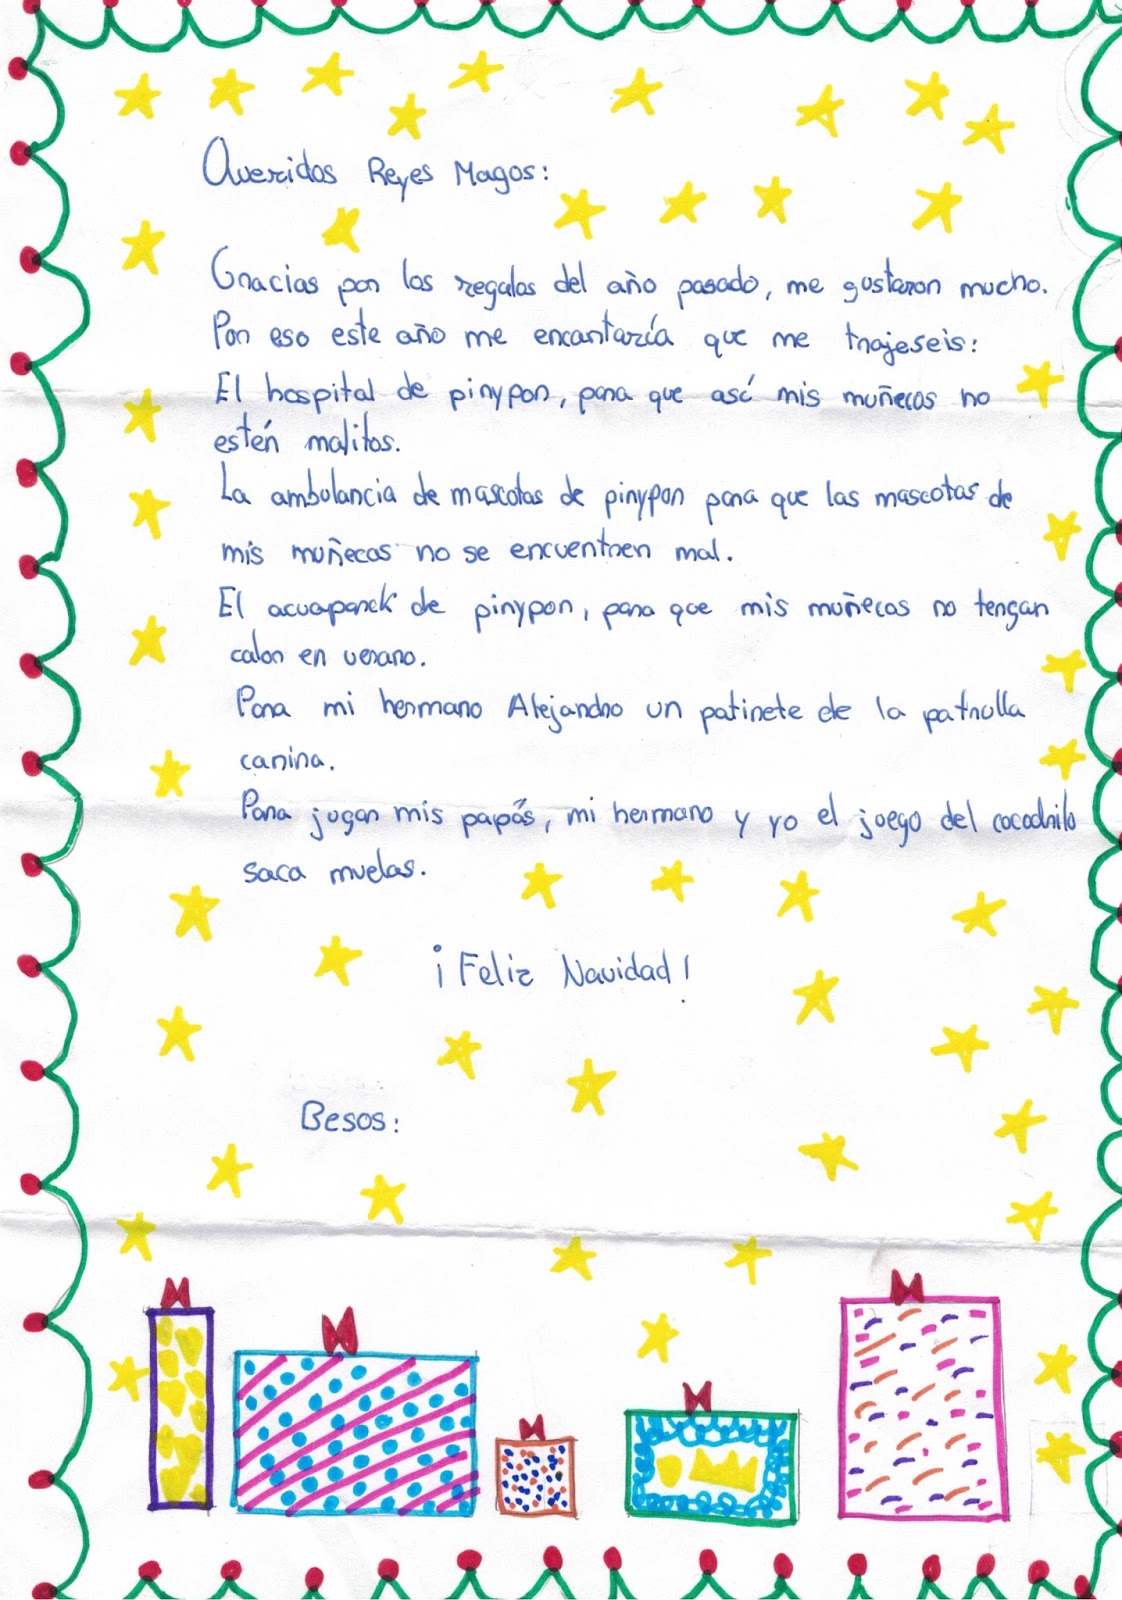 Queridos Reyes Magos:
Gracias por los regalos del año pasado, me gustaron mucho.
Por eso este año me encantaría que me trajeseis:
El hospital de pinypon, para que así mis muñecos no
estén malitos.
La ambulancia de mascotas de pinypon para que las mascotas de
mis muñecos no se encuentren mal.
El acuaparck de pinypon, para que mis muñecos no tengan
calor en verano.
Para mi hermano Alejandro un patinete de la patrulla
canina.
Para jugar mis papás, mi hermano y yo el juego del cocodrilo
saca muelas.
¡Feliz Navidad!
Besos: